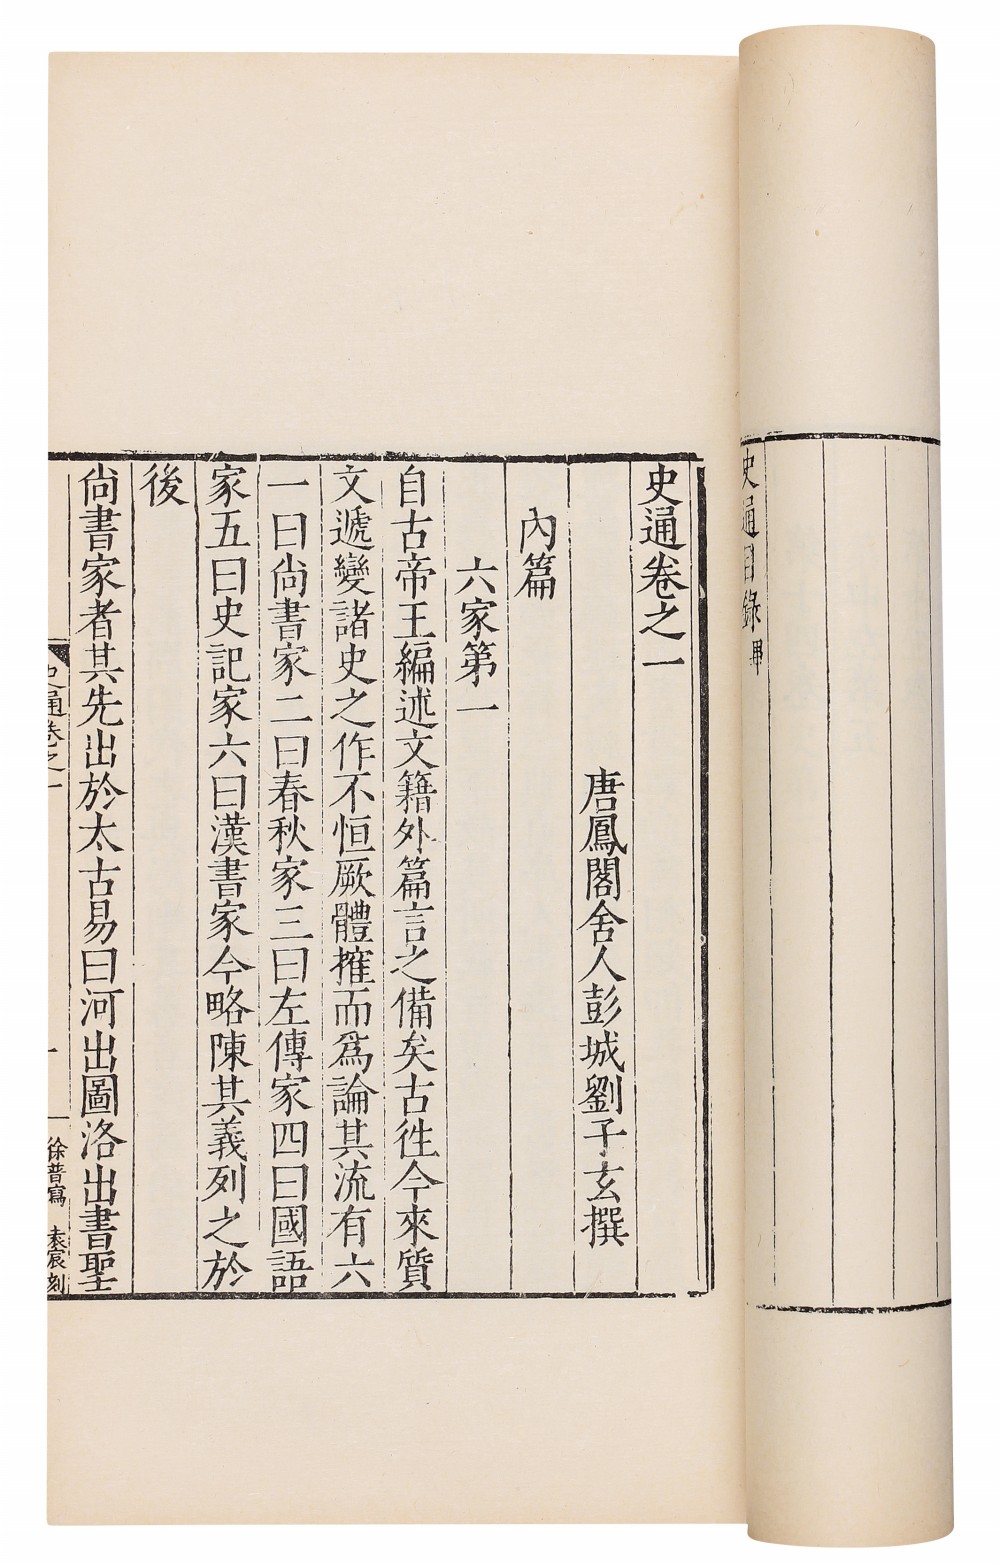 史通目錄畢
史通卷之一
唐鳳閣舍人彭城劉子玄撰
內篇
六家第一
自古帝王編述文籍外篇言之備矣古往今來質
文遞變諸史之作不恒厥體搉而爲論其流有六
一曰尚書家二曰春秋家三曰左傳家四曰國語
家五曰史記家六曰漢書家今略陳其義列之於
後
尚書家者其先出於太古易曰河出圖洛出書聖
史通卷之一
一
徐普寫 袁宸刻